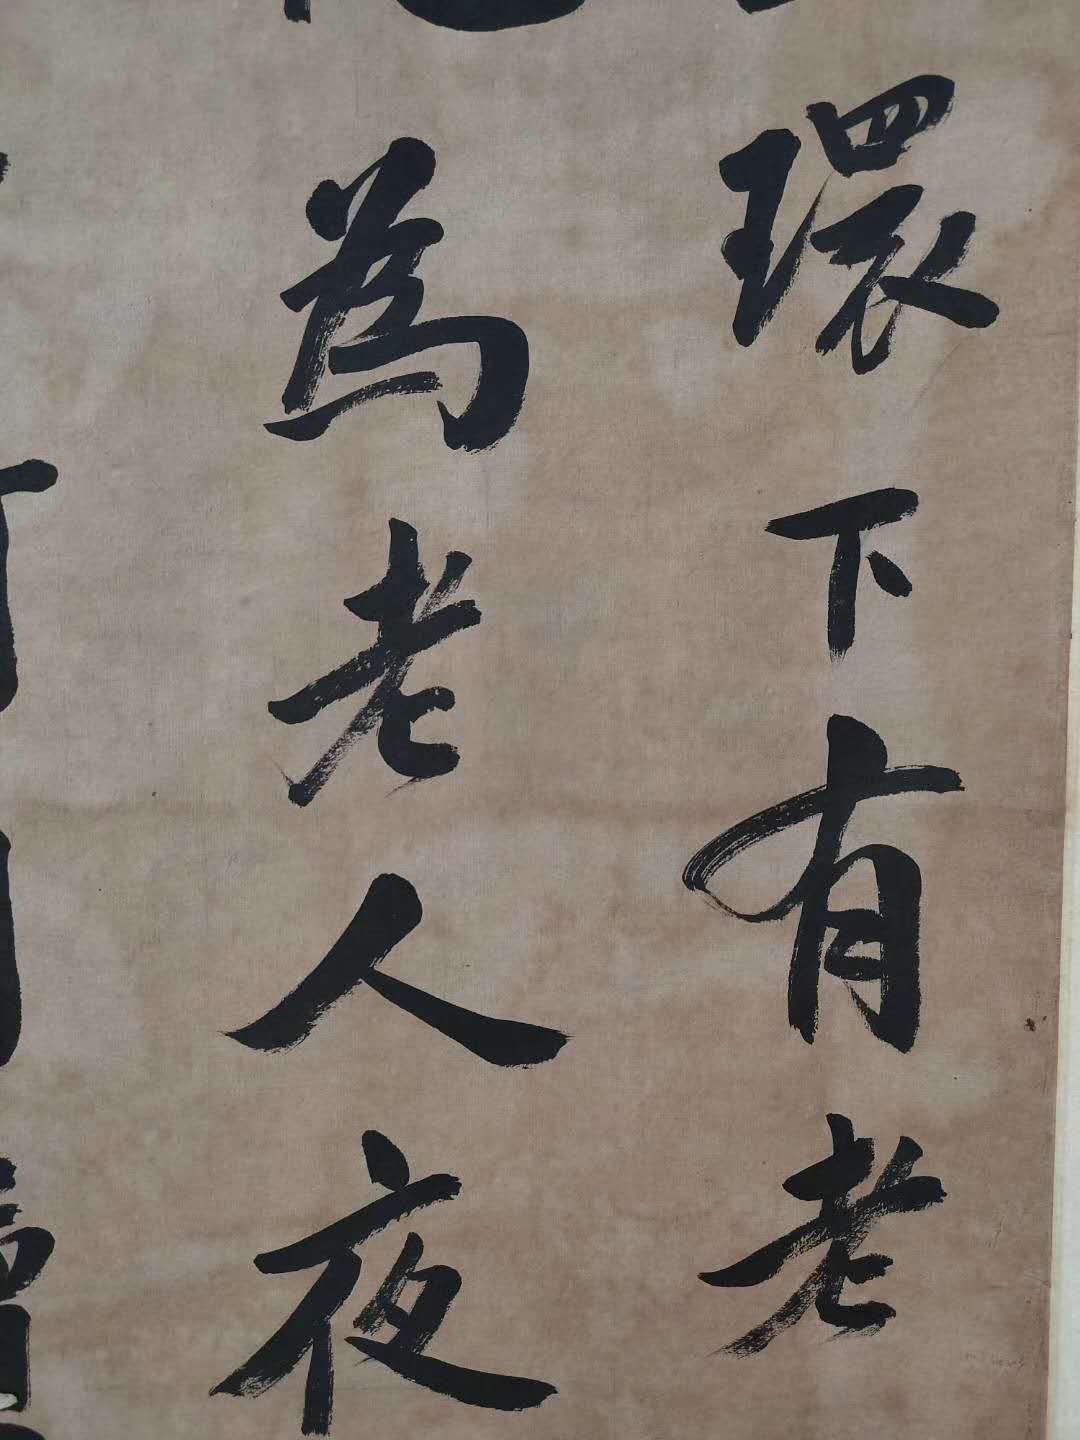 環下有老
為老人夜